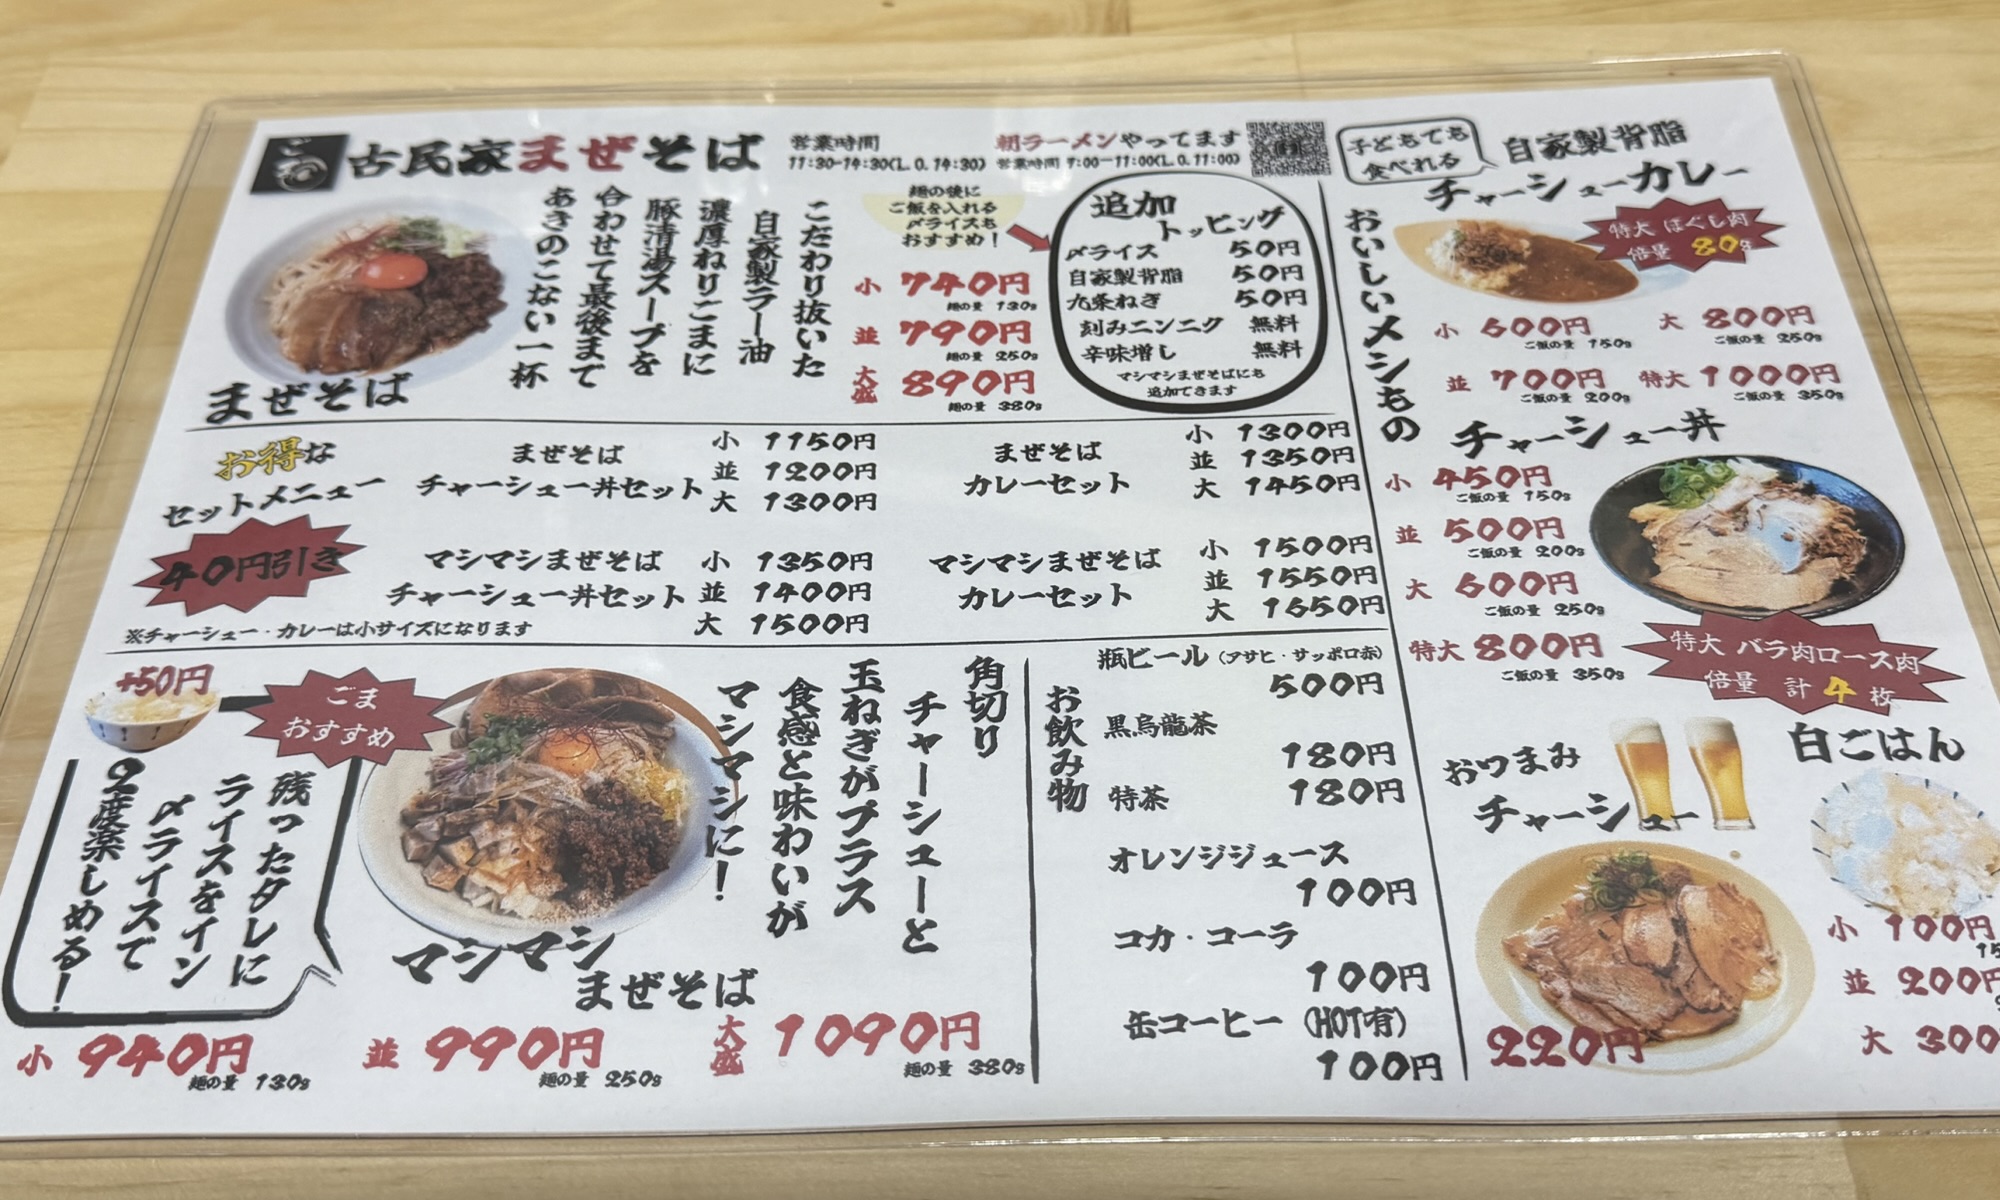 古民家まぜそば
営業時間
11:30-14:30(L.O.14:30)
朝ラーメンやってます
営業時間 7:00-11:00(L.O.11:00)
こだわり抜いた
自家製ラー油
濃厚ねりごまに
豚清湯スープを
合わせて最後まで
あきのこない一杯
まぜそば
麺の後に
ご飯を入れる
〆ライスも
おすすめ!
小 740円
麺の量 130g
並 790円
麺の量 250g
大盛 890円
麺の量 380g
追加
トッピング
〆ライス 50円
自家製背脂 50円
九条ねぎ 50円
刻みニンニク 無料
辛味増し 無料
マシマシまぜそばにも
追加できます
お得な
セットメニュー
40円引き
まぜそば
チャーシュー丼セット
小 1150円
並 1200円
大 1300円
まぜそば
カレーセット
小 1300円
並 1350円
大 1450円
マシマシまぜそば
チャーシュー丼セット
小 1350円
並 1400円
大 1500円
マシマシまぜそば
カレーセット
小 1500円
並 1550円
大 1650円
※チャーシュー・カレーは小サイズになります
+50円
ごま
おすすめ
残ったタレに
ライスをイン
〆ライスで
2度楽しめる!
角切り
チャーシューと
玉ねぎがプラス
食感と味わいが
マシマシに!
マシマシ
まぜそば
小 940円
麺の量 130g
並 990円
麺の量 250g
大盛 1090円
麺の量 380g
お飲み物
瓶ビール(アサヒ・サッポロ赤)
500円
黒烏龍茶
180円
特茶
180円
オレンジジュース
100円
コカ・コーラ
100円
缶コーヒー(HOT有)
100円
おいしいメシもの
子どもでも
食べれる
自家製背脂
チャーシューカレー
特大 ほぐし肉
倍量 80g
小 600円
ご飯の量 150g
大 800円
ご飯の量 250g
並 700円
ご飯の量 200g
特大 1000円
ご飯の量 350g
チャーシュー丼
小 450円
ご飯の量 150g
並 500円
ご飯の量 200g
大 600円
ご飯の量 250g
特大 800円
ご飯の量 350g
特大 バラ肉ロース肉
倍量 計4枚
おつまみ
チャーシュー
220円
白ごはん
小 100円
15
並 200円
大 300